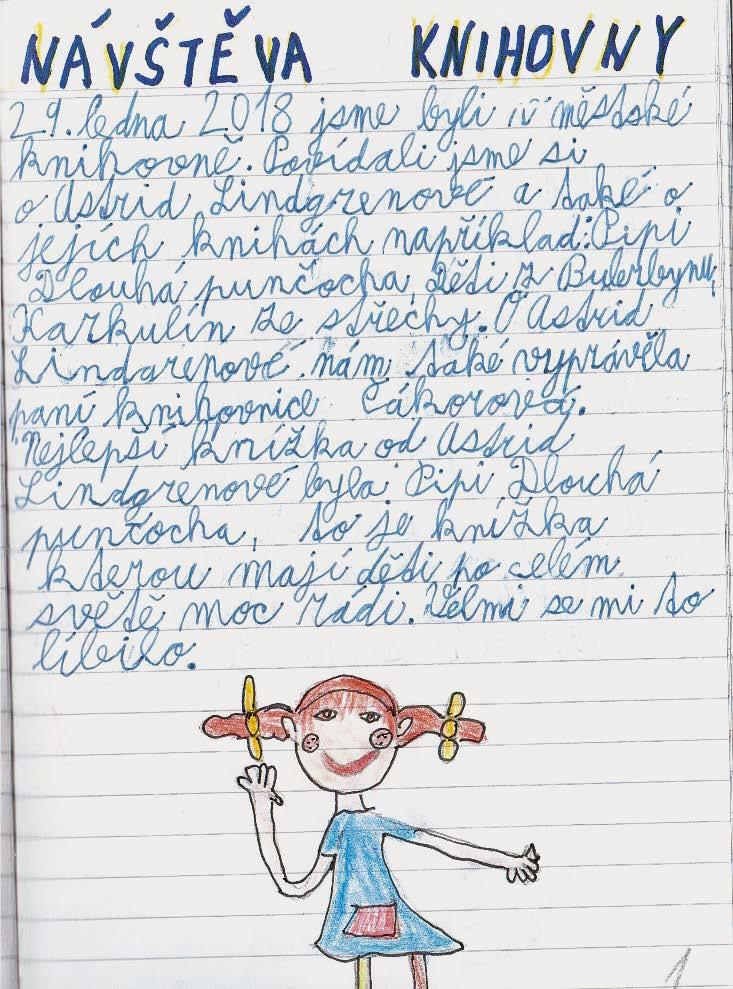 NÁVŠTĚVA KNIHOVNY
29. ledna 2018 jsme byli v městské
knihovně. Povídali jsme si
o Astrid Lindgrenové a také o
jejích knihách například: Pipi
Dlouhá punčocha, Děti z Bulerbynu,
Karkulín ze střechy. O Astrid
Lindgrenové nám také vyprávěla
paní knihovnice Čákorová.
Nejlepší knížka od Astrid
Lindgrenové byla Pipi Dlouhá
punčocha, to je knížka
kterou mají děti po celém
světě moc rádi. Velmi se mi to
líbilo.
1